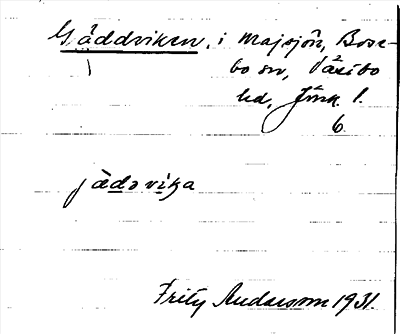 Gäddviken, i Majsjön, Bose-
bo sn, Västbo
hd, Jönk. l.
6.
jädvika
Fritz Andersson 1931.